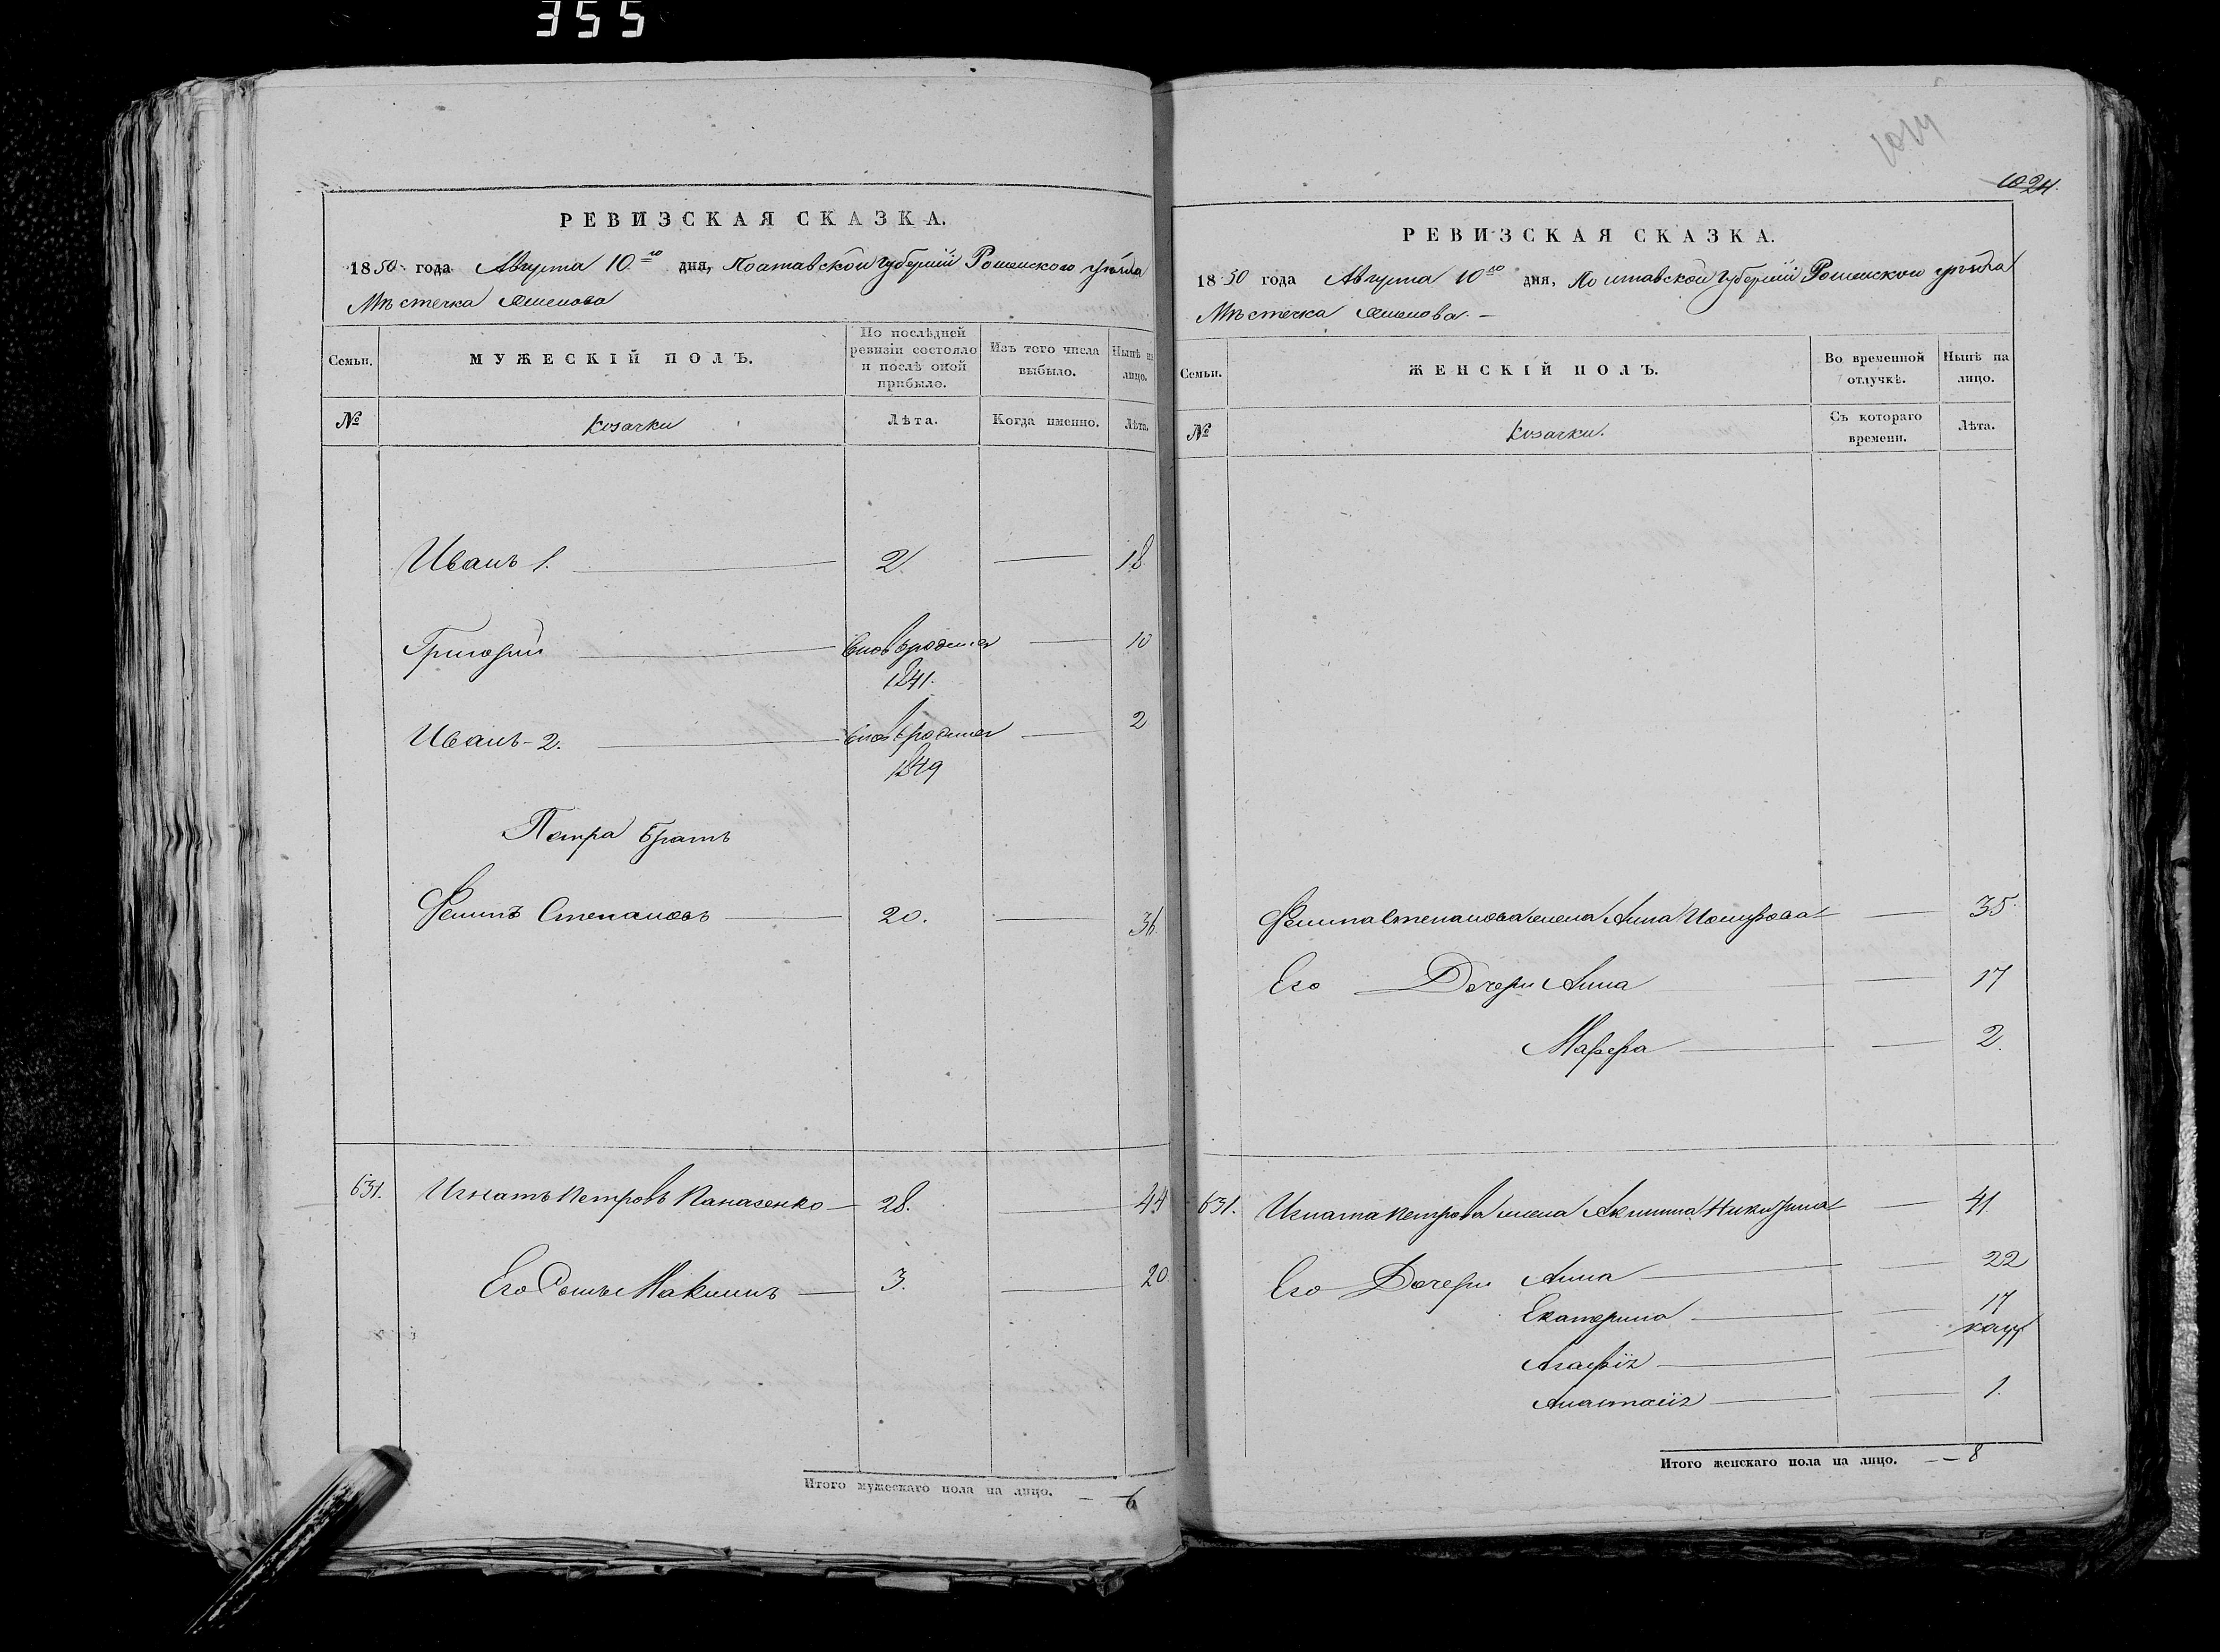 355
1024.
РЕВИЗСКАЯ СКАЗКА.
1850 года Августа 10го дня, Полтавской губерніи Роменского уѣзда
Мѣстечка
Семьи.
МУЖЕСКІЙ ПОЛЪ.
По послѣдней ревизіи состояло и послѣ оной прибыло.
Изъ того числа выбыло.
Нынѣ на лицо.
№
Козачки
Лѣта.
Когда именно.
Лѣта.
Иванъ 1. 2 18
Григорій вновьродился 10
1841.
Иванъ-2. вновьродился 2
1849
Петра братъ
Филипъ Степановъ 20. 36
631. Игнатъ Петровъ Панасенко 28. 44
Его Сынъ Максимъ 3. 20
Итого мужескаго пола на лицо. 6
РЕВИЗСКАЯ СКАЗКА.
1850 года Августа 10го дня, Полтавской губерніи Роменского уѣзда
Мѣстечка
Семьи.
ЖЕНСКІЙ ПОЛЪ.
Во временной отлучкѣ.
Нынѣ на лицо.
№
Козачки.
Съ котораго времени.
Лѣта.
Филипа Степанова жена Анна 35
Его Дочери Анна 17
Марфа 2.
631. Игната Петрова жена Акилина Никифорова 41
Его Дочери Анна 22
Екатерина 17
Агафія
Анастасія 1.
Итого женскаго пола на лицо. 8